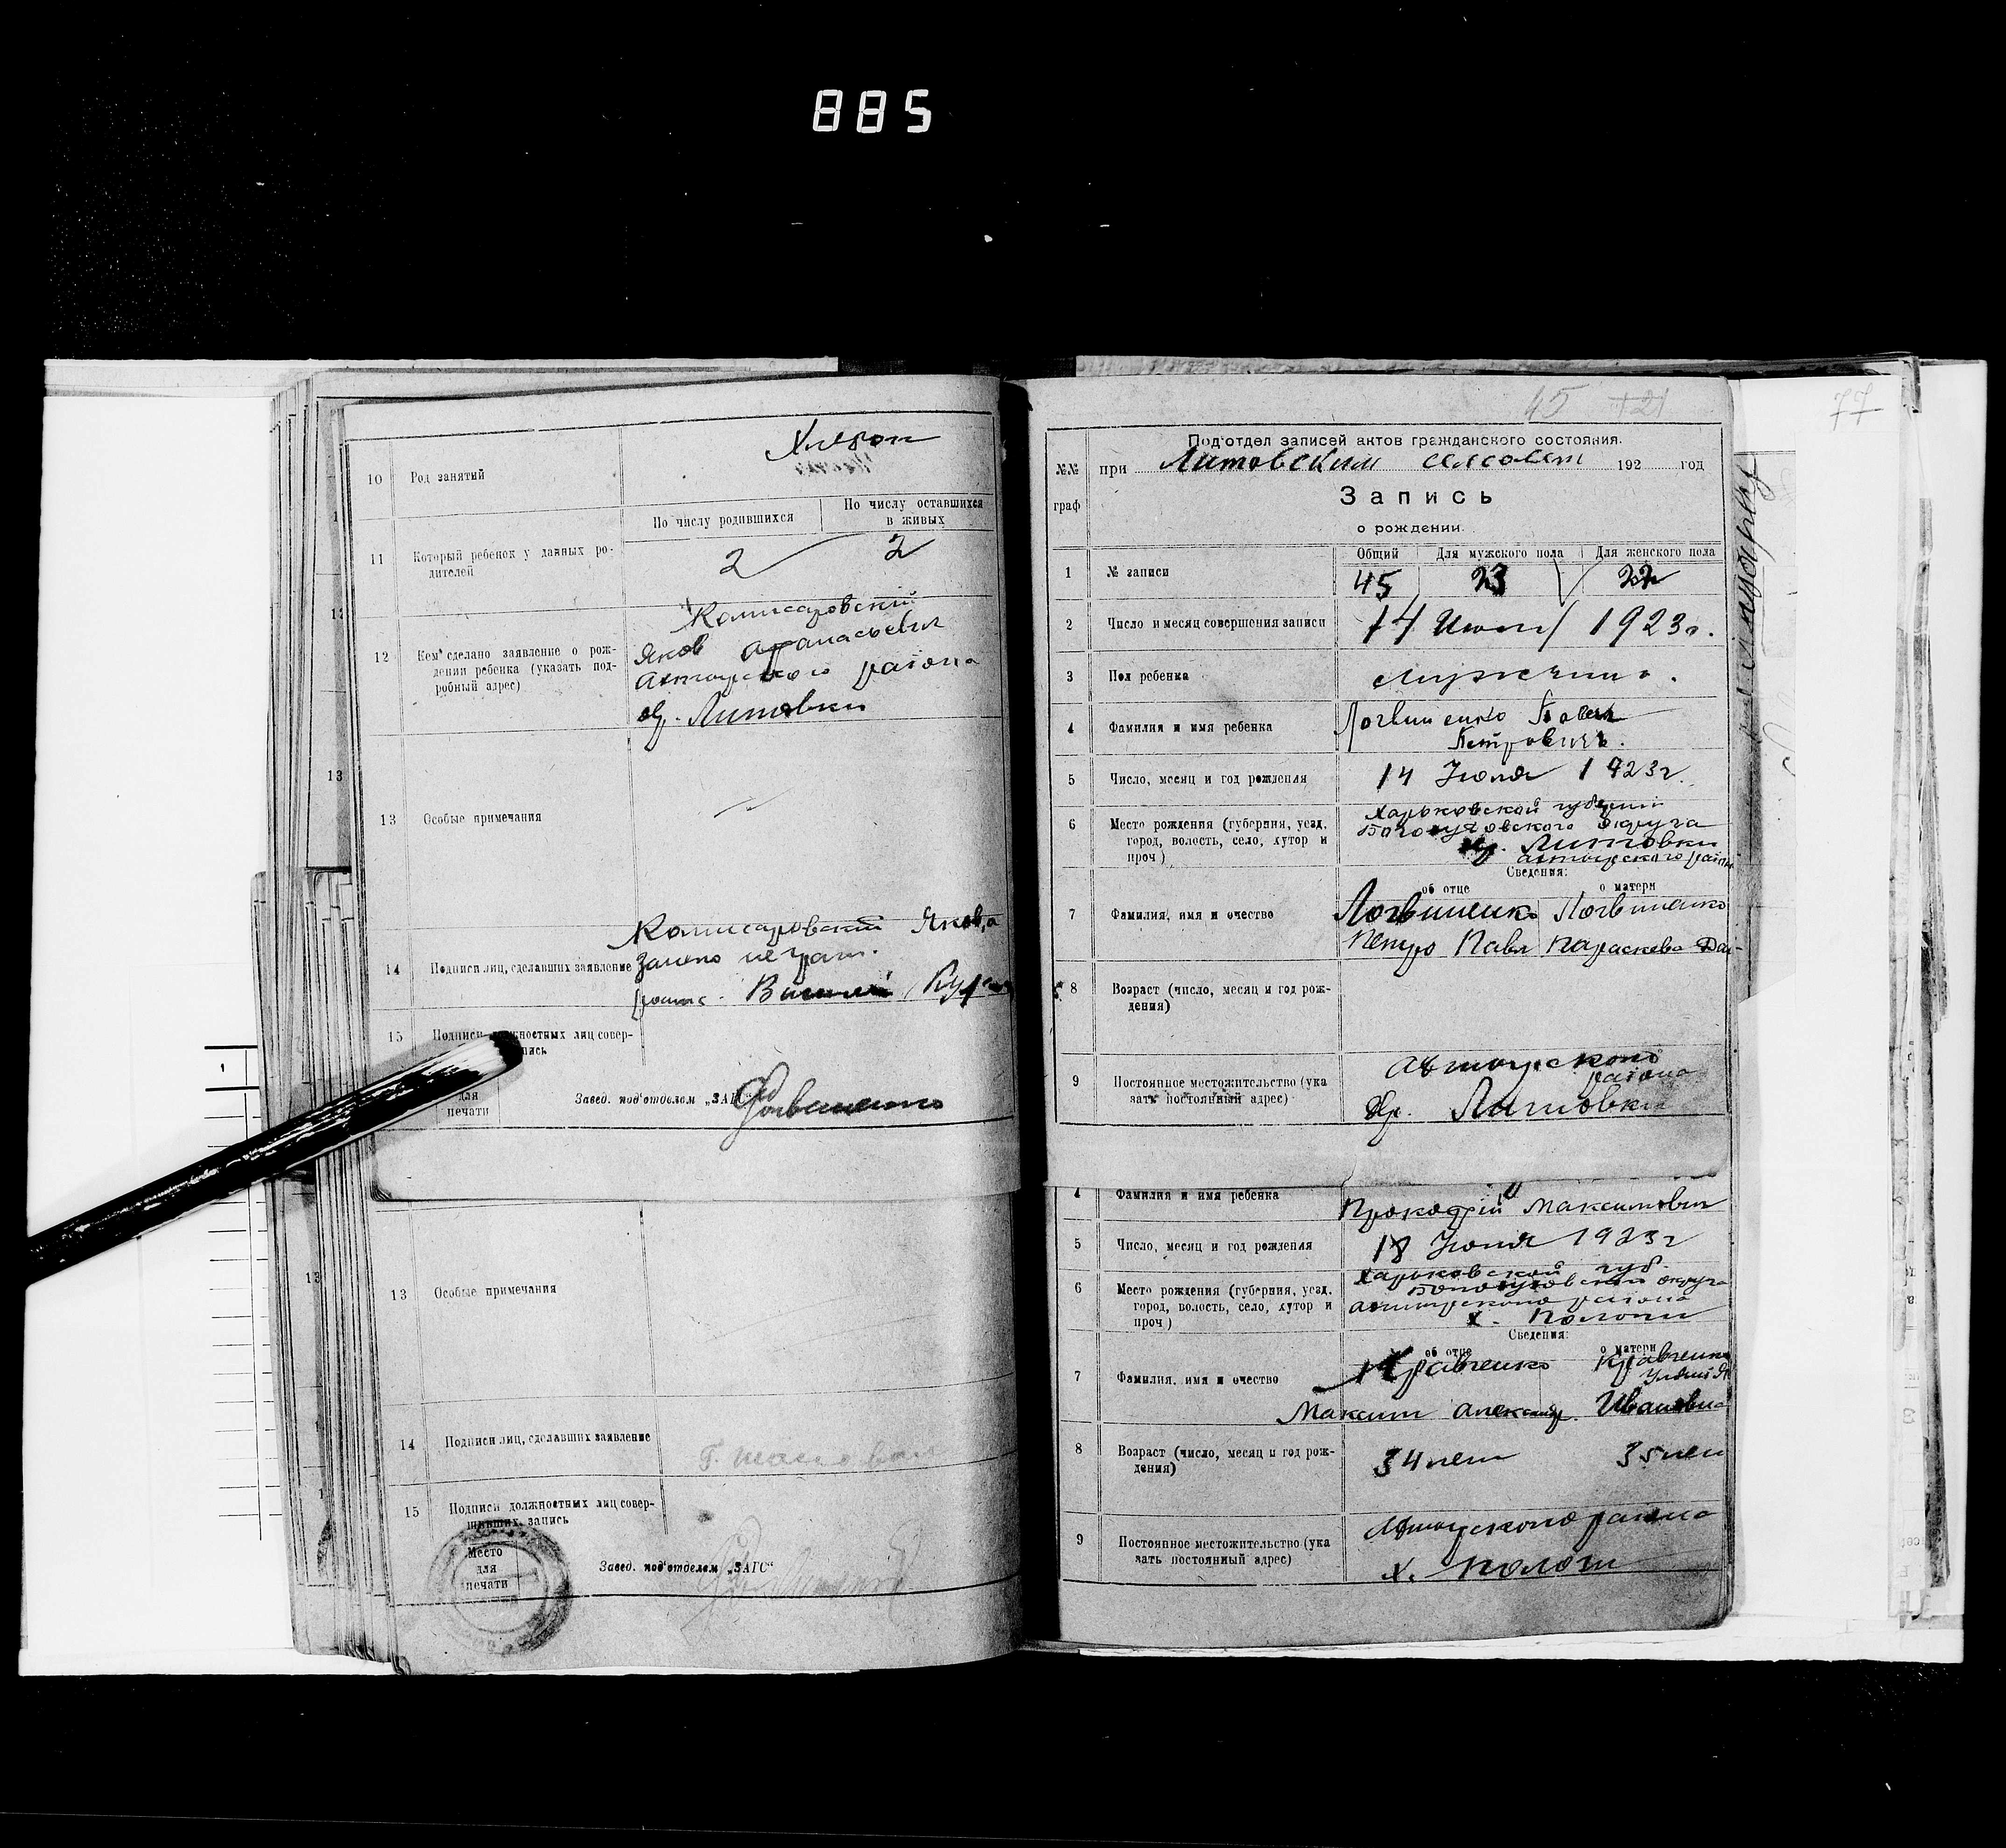 885
10 Род занятий
Хлебоп
11 Который ребенок у данных ро-
дителей
По числу родившихся
По числу оставшихся
в живых
2 2
12 Кем сделано заявление о рож-
дении ребенка (указать под-
робный адрес)
Комисаровский
Яков Афанасьевич
Ахтырского района
х. Литовки
13 Особые примечания
14 Подписи лиц, сделавших заявление
Комисаровский Яков, а
за него неграм.
15 Подписи должностных лиц совер-
для
печати
Завед. под‘отделом „ЗАГС“
13 Особые примечания
14 Подписи лиц, сделавших заявление
15 Подписи должностных лиц совер-
шивших запись
Место
для
печати
Завед. под‘отделом „ЗАГС“
45
77
Под‘отдел записей актов гражданского состояния.
№№
граф
при Литовским сельсовет 192 год
Запись
о рождении.
Общий Для мужского пола Для женского пола
1 № записи 45 23 22
2 Число и месяц совершения записи 14 Июля 1923 г.
3 Пол ребенка мужчина.
4 Фамилия и имя ребенка Логвиненко Павел
Петровичъ.
5 Число, месяц и год рождения 14 Июля 1923 г.
6 Место рождения (губерния, уезд,
город, волость, село, хутор и
проч)
Харьковской губернии
Богодуховского округа
х. Литовки
Ахтырского района
Сведения:
об отце о матери
7 Фамилия, имя и очество
Логвиненко Логвиненко
Петро Павл Параскева Дан-
8 Возраст (число, месяц и год рож-
дения)
9 Постоянное местожительство (ука
зать постоянный адрес)
Ахтырского
района
х. Литовки
4 Фамилия и имя ребенка
Прокофий Максимович
5 Число, месяц и год рождения 18 Июля 1923 г
6 Место рождения (губерния, уезд,
город, волость, село, хутор и
проч)
Харьковской губ.
Богодуховский округа
ахтырского района
х.
Сведения:
об отце о матери
7 Фамилия, имя и очество
Кравченко Кравченко
Максим Александр. Ивановна
8 Возраст (число, месяц и год рож-
дения)
34 лет 35 лет
9 Постоянное местожительство (ука
зать постоянный адрес)
Ахтырского района
х.